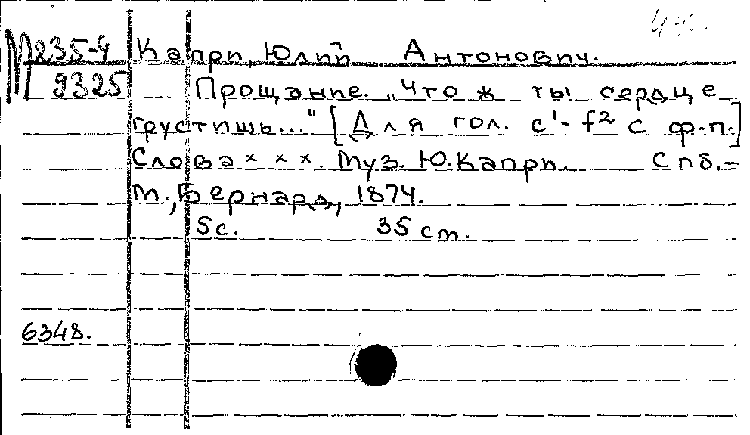 М 235-4 Капри, Юлий Антонович.
9325 Прощание. „Что ж ты сердце
грустишь..." [Для гол. c¹- f² с ф-п.]
Слова х х х. Муз. Ю.Капри. Спб.-
М., Бернард, 1874.
5с. 35 ст.
6348.